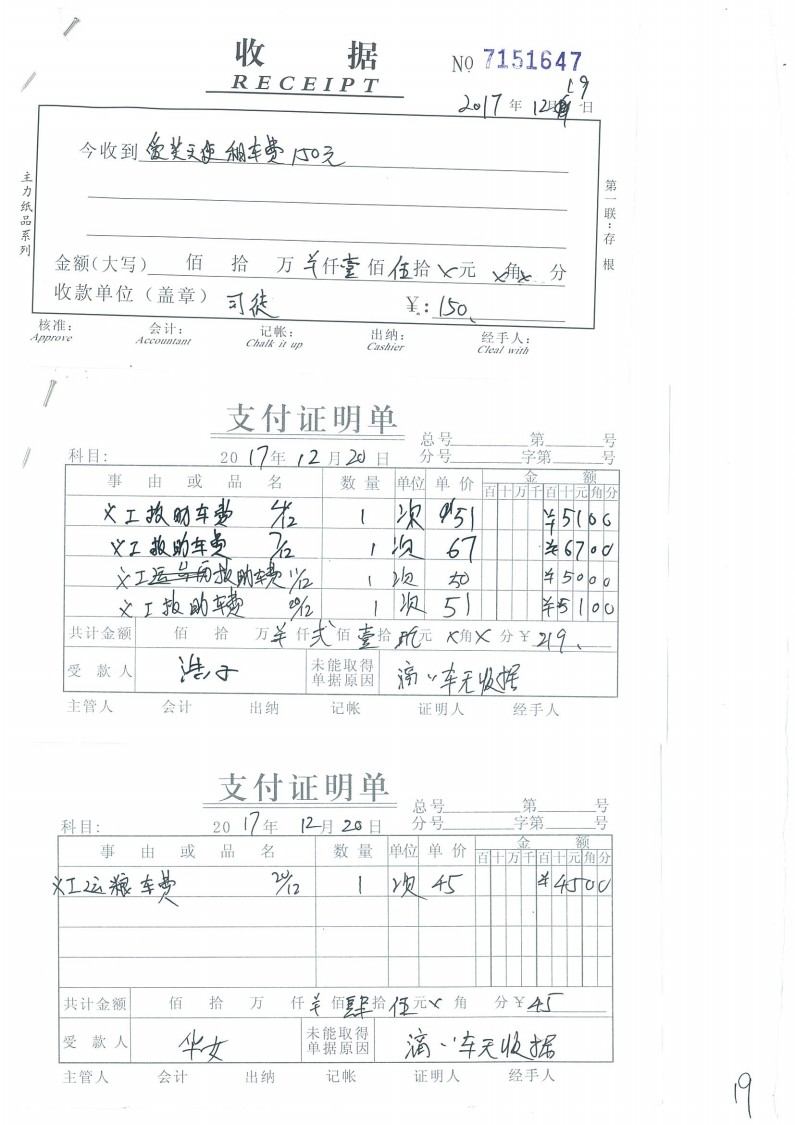 收 据
RECEIPT
№ 7151647
2017年12月19日
今收到 爱芙天使 租车费150元
金额(大写) 佰 拾 万 羊仟壹佰伍拾×元×角× 分
收款单位（盖章） 司徒 ¥: 150
核准: 会计: 记帐: 出纳: 经手人:
Approve Accountant Chalk it up Cashier Cleal with
主力纸品系列
第一联:存根
支付证明单
总号 第 号
科目: 2017年12月20日 分号 字第 号
事 由 或 品 名 数量 单位 单价 金 额
百十万千百十元角分
义工救助车费 4/12 1 次 51 ¥5100
义工救助车费 7/12 1 次 67 ¥6700
救助车费 11/12 1 次 50 ¥5000
义工救助车费 20/12 1 次 51 ¥5100
共计金额 佰 拾 万羊仟弍佰壹拾玖元×角×分¥219
受款人 浩子 未能取得单据原因 滴滴车无收据
主管人 会计 出纳 记帐 证明人 经手人
支付证明单
总号 第 号
科目: 2017年12月20日 分号 字第 号
事 由 或 品 名 数量 单位 单价 金 额
百十万千百十元角分
义工运粮车费 20/12 1 次 45 ¥4500
共计金额 佰 拾 万 仟羊佰肆拾伍元× 角 分¥45
受款人 华女 未能取得单据原因 滴滴车无收据
主管人 会计 出纳 记帐 证明人 经手人
19